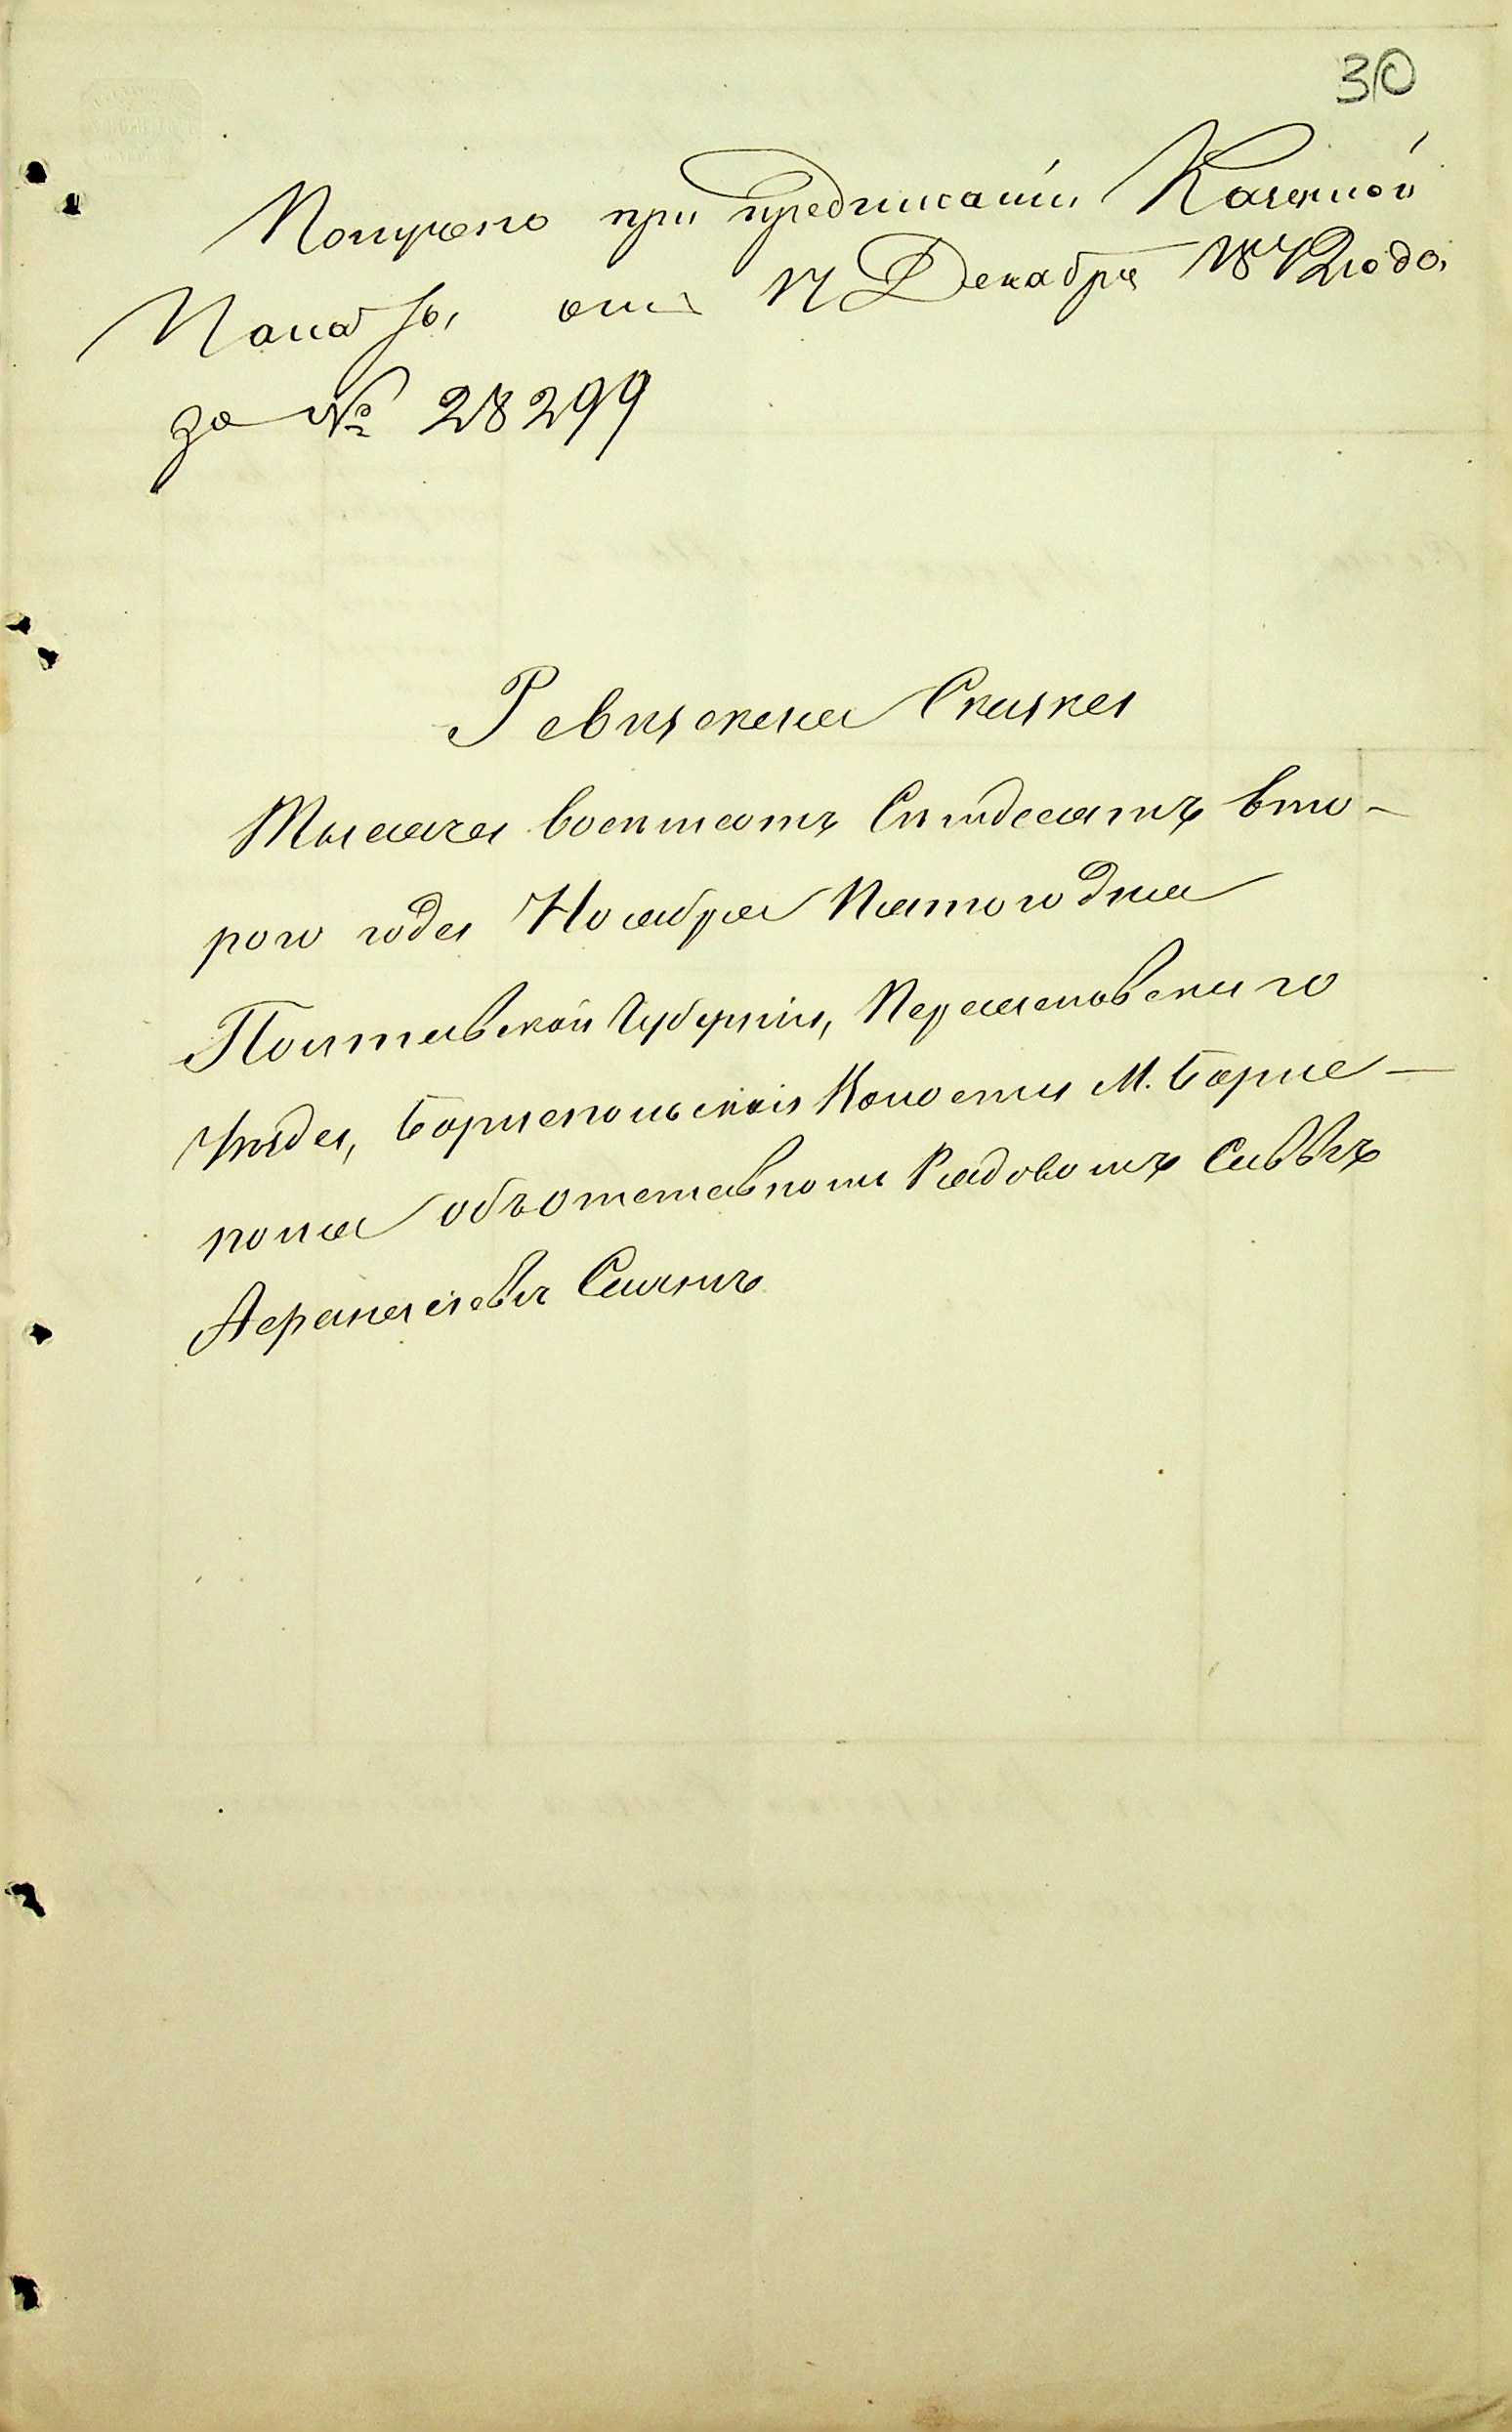 30
Получено при предписаніи Казенной
Палаты, отъ 17 Декабря 1872 года
за № 28299
Ревизская Сказка
Тысяча восемсотъ Семдесятъ вто-
рого года Ноября Пятого дня
Полтавской Губерніи, Переяславского
Уѣзда, Бориспольской Волости М. Борис-
поля объ отставномъ Рядовомъ Саввѣ